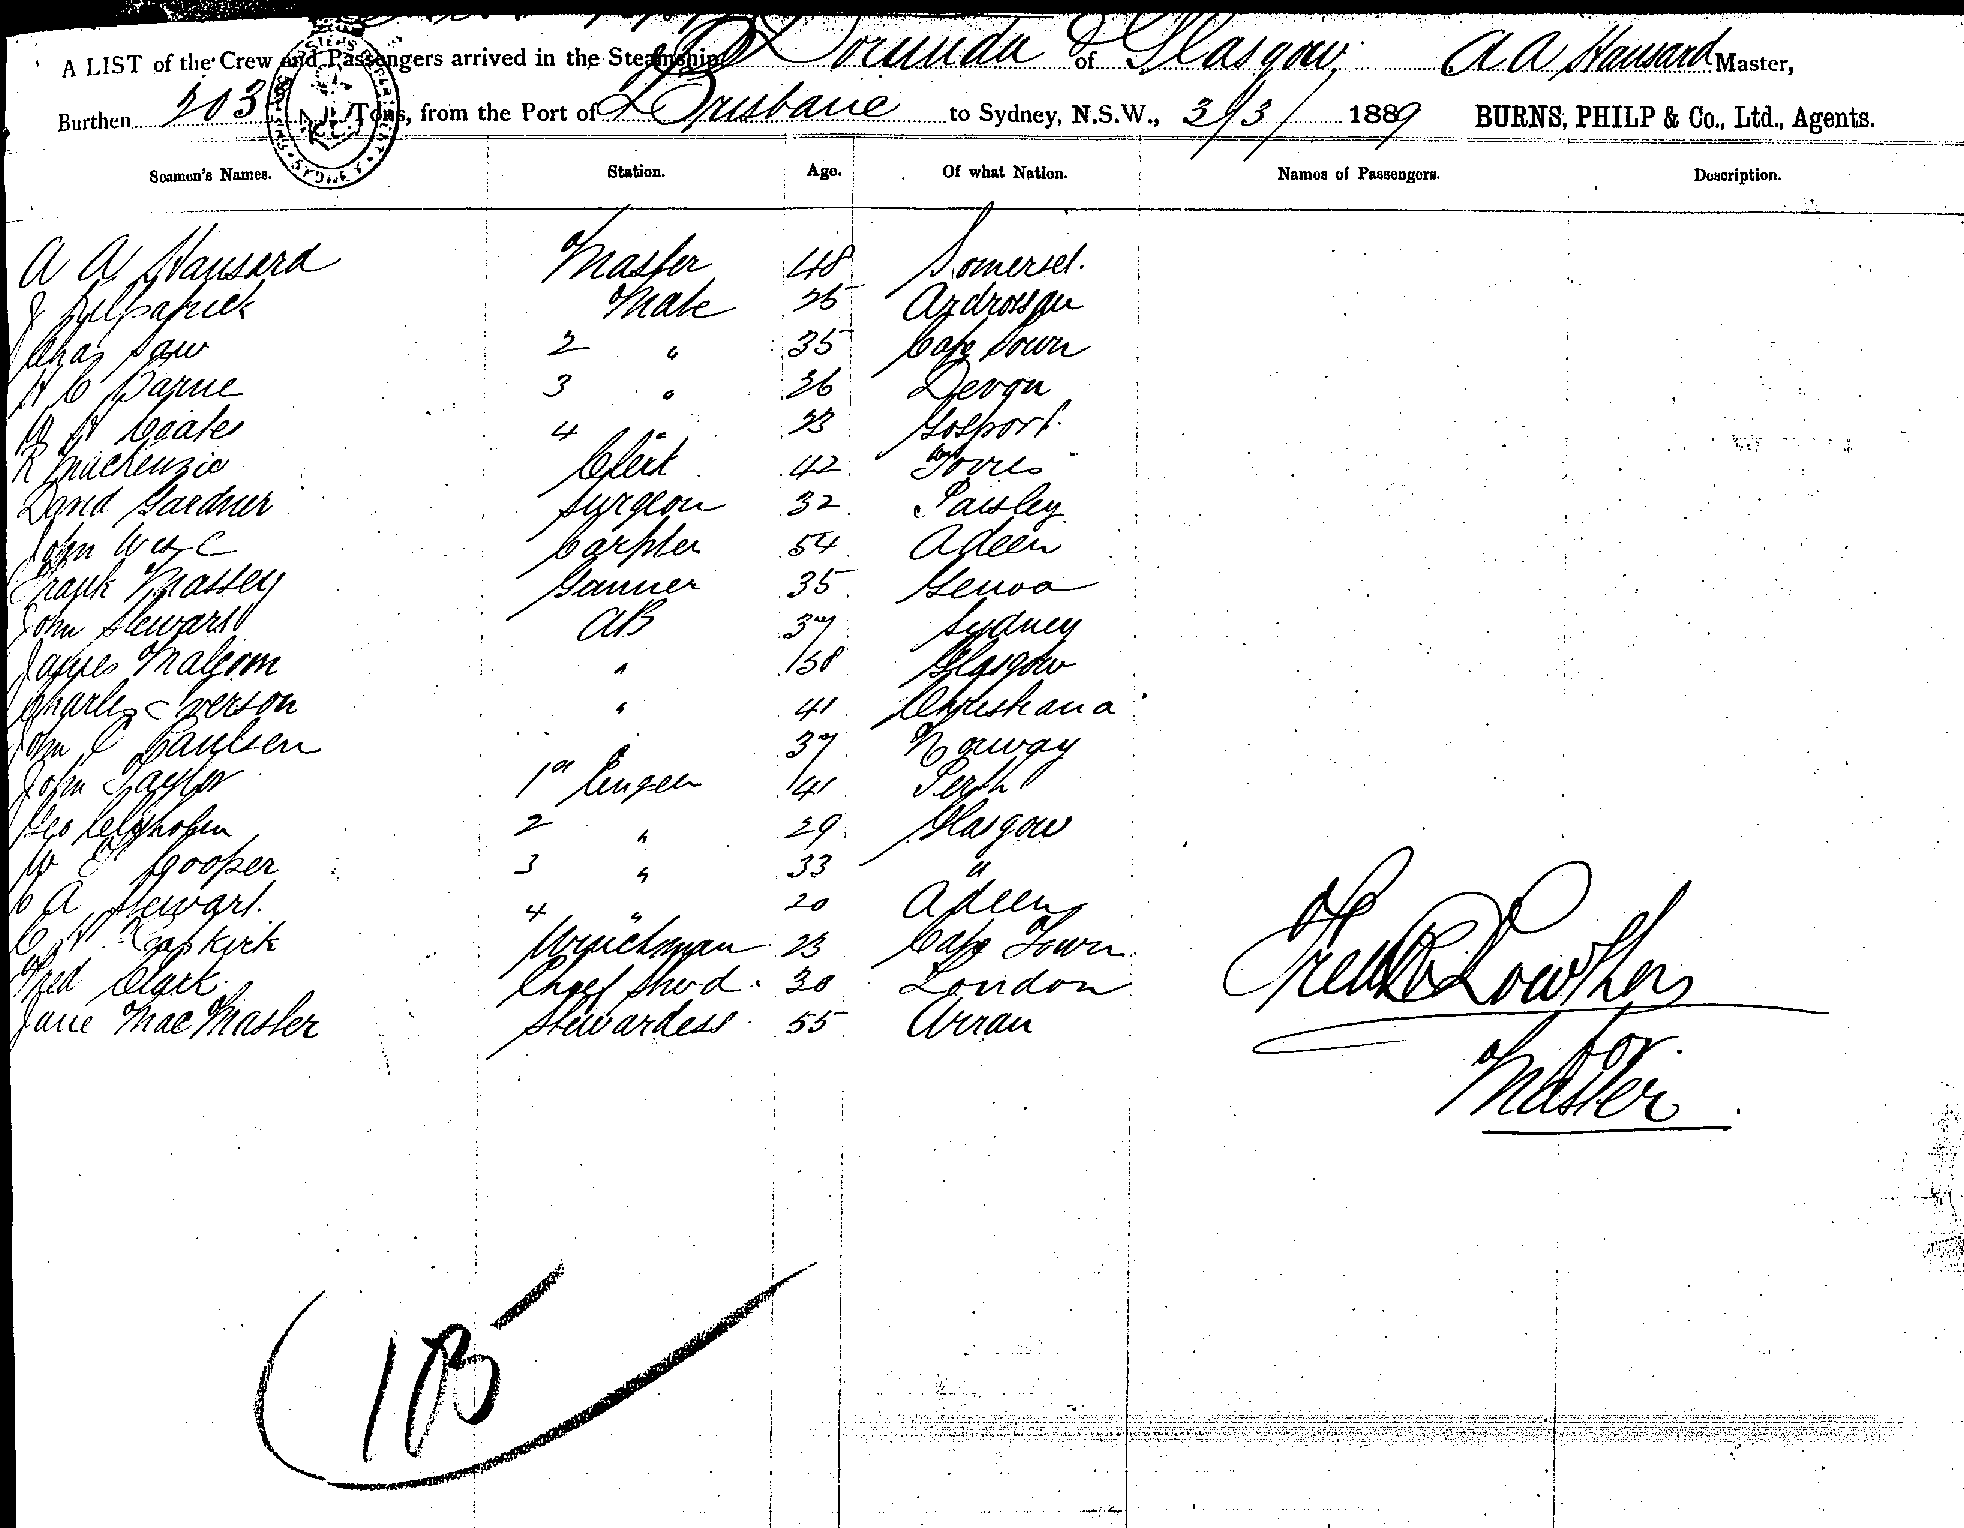 A LIST of the Crew and Passengers arrived in the Steamship Dorunda of Glasgow, A A Hansard Master,
Burthen 203 Tons, from the Port of Brisbane to Sydney, N.S.W., 3/3/ 1889 BURNS, PHILP & Co., Ltd., Agents.
Seamen's Names. Station. Age. Of what Nation. Names of Passengers. Description.
A A Hansard Master 48 Somerset.
J Kilpatrick Mate 25 Ardrossan
Chas Saw 2 " 35 Cape Town
H C Barne 3 " 26 Devon
Coates 4 " 23 Gosport.
R MacKenzie Clerk 42 Forres
David Gardner Surgeon 32 Paisley
John Carpter 54 Adeen
Frank Massey Gunner 35 Genoa
John Stewart AB 37 Sydney
James Malcom " 58 Glasgow
Charles Iverson " 41 Christiana
John C Paulsen " 37 Norway
John Taylor 1st Engeer 41 Perth
Geo 2 " 29 Glasgow
W Cooper 3 " 33 "
C A Stewart. 4 " 20 Adeen
C Winchman 23 Cape Town
Fred Clark. Chief Stwd. 30 London
Jane MacMaster Stewardess. 55 Arran
Fredk Lowther
for
Master.
105